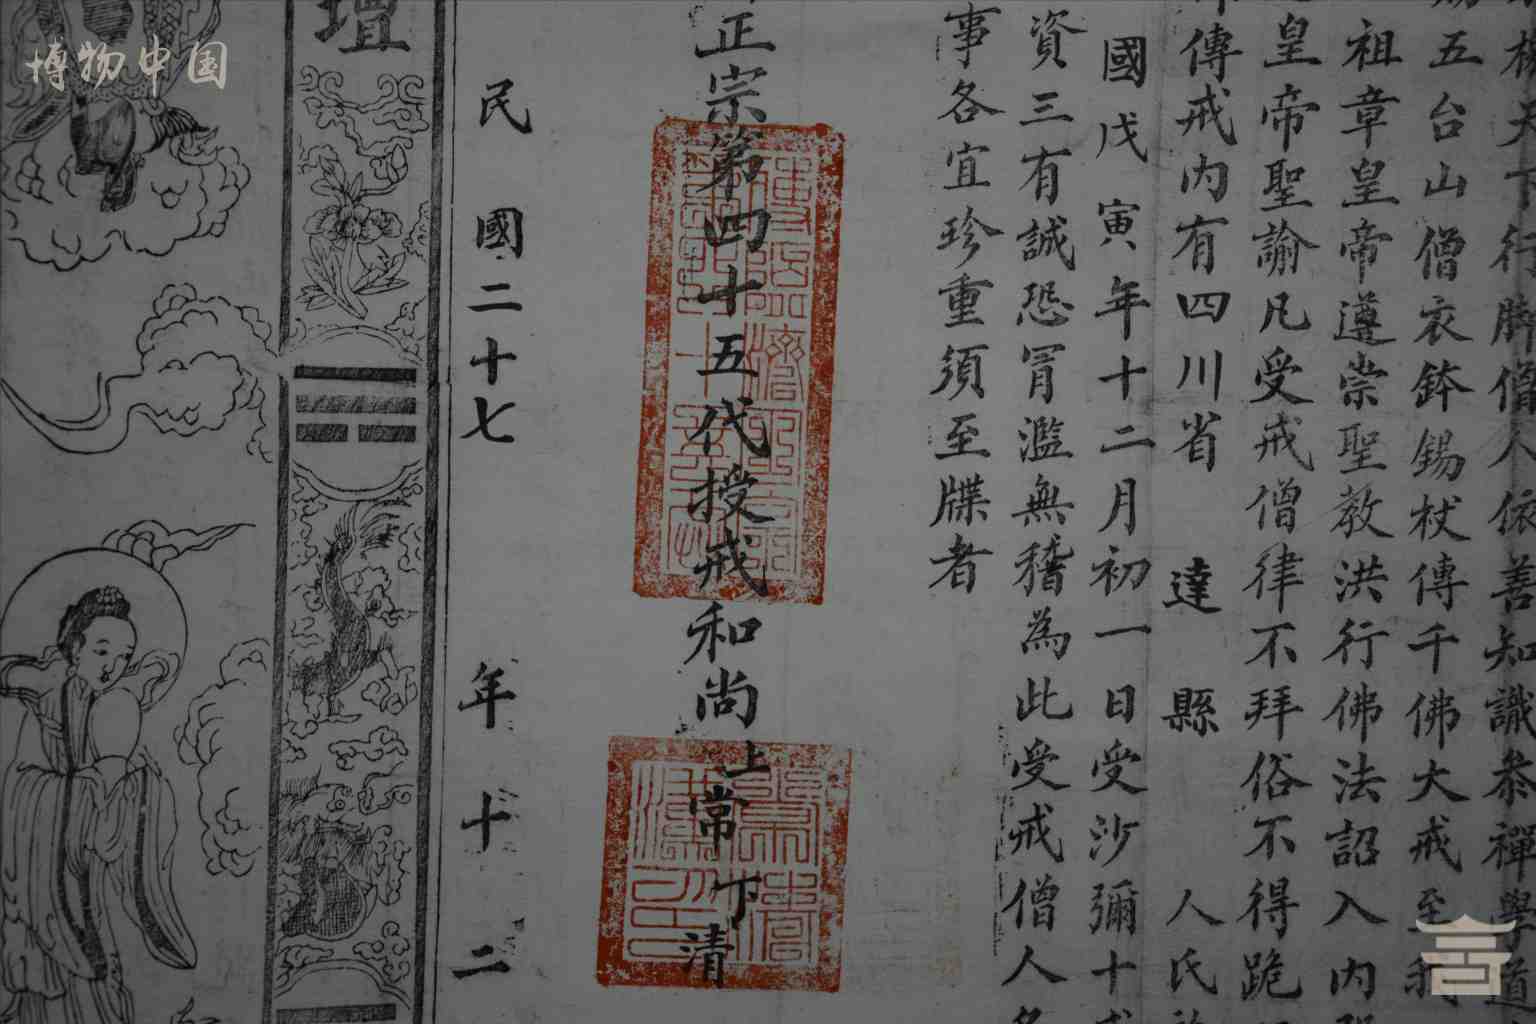 天下行腳僧人依善知識參禪學道
五台山僧衣鉢錫杖傳千佛大戒至我
祖章皇帝遵崇聖教洪行佛法詔入內
皇帝聖諭凡受戒僧律不拜俗不得跪
傳戒內有四川省 達縣 人氏
國戊寅年十二月初一日受沙彌十戒
資三有誠恐冐濫無稽為此受戒僧人名
事各宜珍重須至牒者
正宗第四十五代授戒和尚上常下清
民國二十七年十二
壇
博物中国